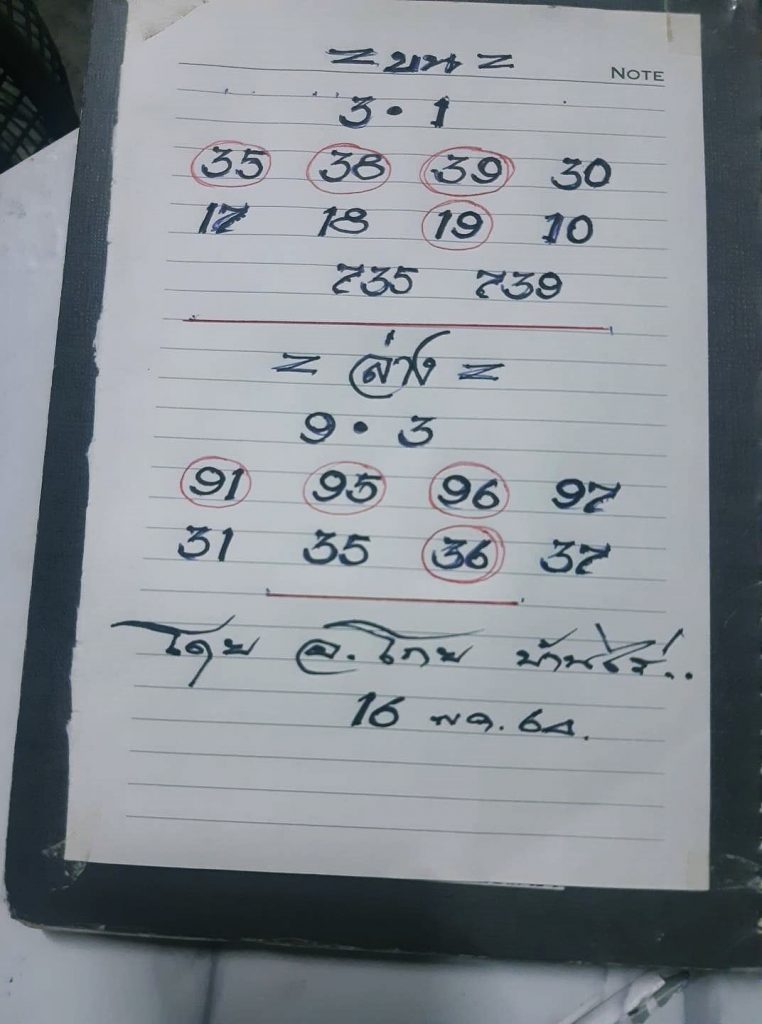 = บน =
NOTE
3 • 1
35 38 39 30
17 18 19 10
735 739
= ล่าง =
9 • 3
91 95 96 97
31 35 36 37
โดย อ. โกย บ้านไร่..
16 พค. 64.